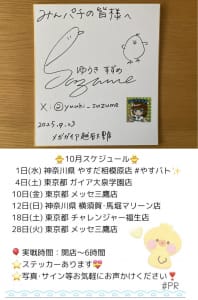 みんパチの皆様へ
ゆうき すずめ
Suzume
X:@yuuki_suzume
2025.9.23
メガガイア
🐥10月スケジュール🐥
1日(水) 神奈川県 やすだ相模原店 #やすパト✨
4日(土) 東京都 ガイア大泉学園店
10日(金) 東京都 メッセ三鷹店
12日(日) 神奈川県 横須賀・馬堀マリーン店
18日(土) 東京都 チャレンジャー福生店
28日(火) 東京都 メッセ三鷹店
📍実戦時間:開店~6時間
⭐ステッカーあります💝
⭐写真・サイン等お気軽にお声かけください❣
#PR